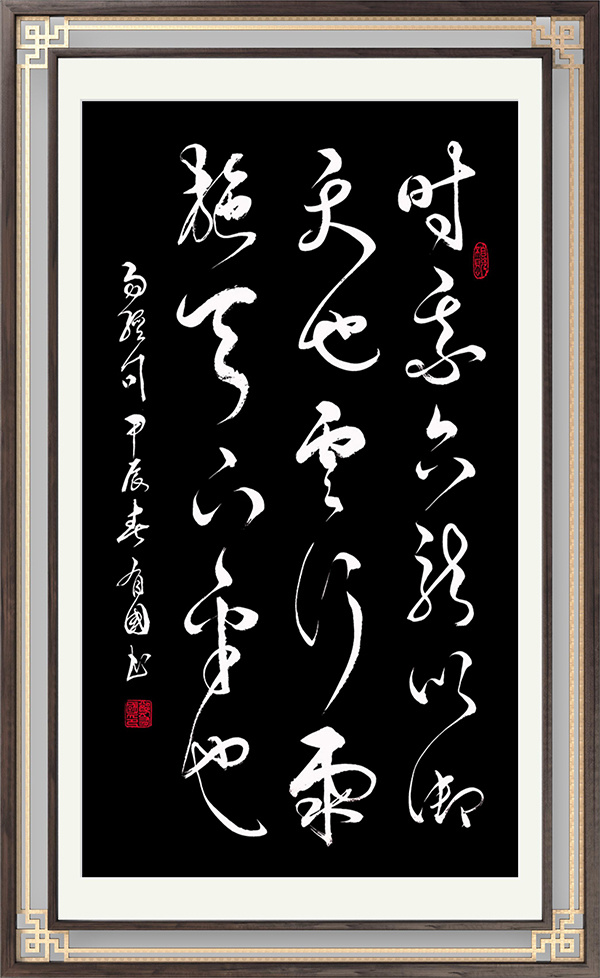 时乘六龙以御
天也云行雨
施天下平也
易经句甲辰春有国书